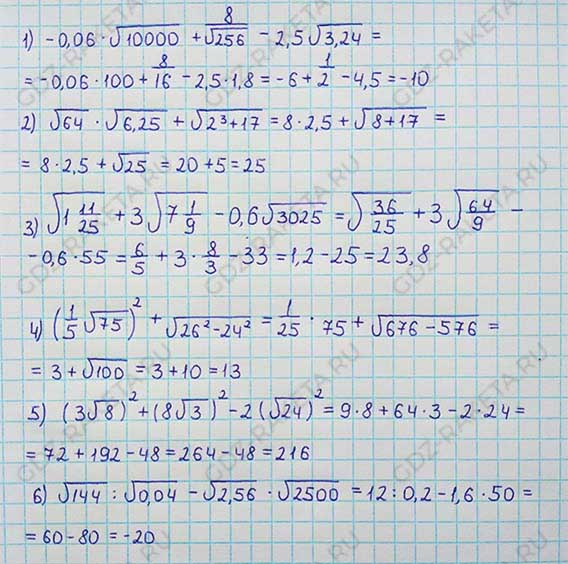 1) -0,06 · √10000 + 8/√256 - 2,5√3,24 =
= -0,06 · 100 + 8/16 - 2,5 · 1,8 = -6 + 1/2 - 4,5 = -10
2) √64 · √6,25 + √2³+17 = 8 · 2,5 + √8+17 =
= 8 · 2,5 + √25 = 20 + 5 = 25
3) √1 11/25 + 3√7 1/9 - 0,6√3025 = √36/25 + 3√64/9 -
- 0,6 · 55 = 6/5 + 3 · 8/3 - 33 = 1,2 - 25 = 23,8
4) (1/5 √75)² + √26²-24² = 1/25 · 75 + √676-576 =
= 3 + √100 = 3 + 10 = 13
5) (3√8)² + (8√3)² - 2(√24)² = 9 · 8 + 64 · 3 - 2 · 24 =
= 72 + 192 - 48 = 264 - 48 = 216
6) √144 : √0,04 - √2,56 · √2500 = 12 : 0,2 - 1,6 · 50 =
= 60 - 80 = -20
GDZ-RAKETA.RU